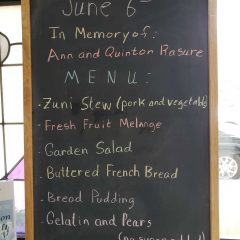 June 6
In Memory of:
Ann and Quinton Rasure
MENU:
· Zuni Stew (pork and vegetable)
· Fresh Fruit Melange
· Garden Salad
· Buttered French Bread
· Bread Pudding
· Gelatin and Pears
(no sugar added)